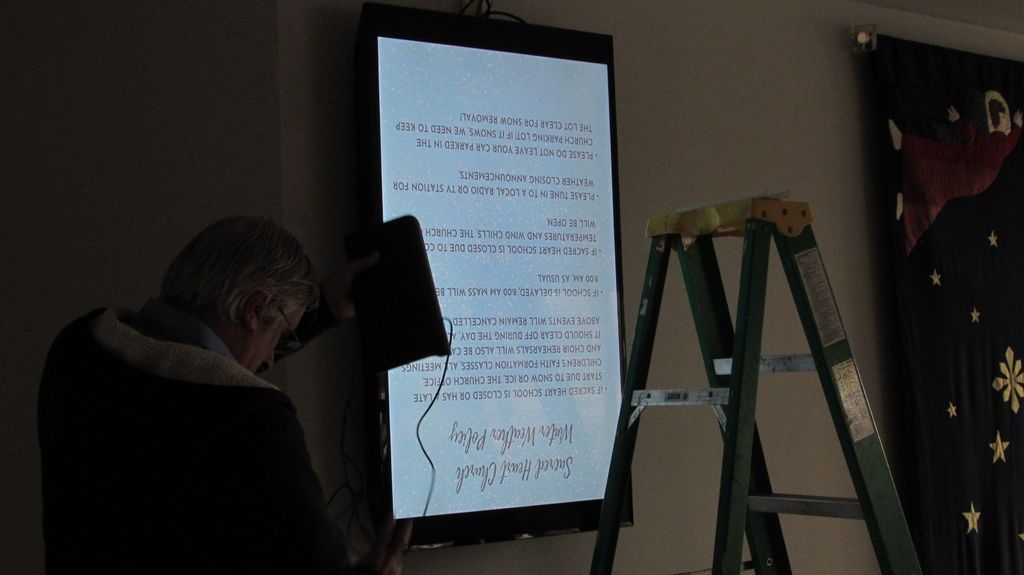 Sacred Heart Church
Winter Weather Policy
• IF SACRED HEART SCHOOL IS CLOSED OR HAS A LATE
START DUE TO SNOW OR ICE THE CHURCH OFFICE,
CHILDREN'S FAITH FORMATION CLASSES, ALL MEETINGS
AND CHOIR REHEARSALS WILL ALSO BE
IT SHOULD CLEAR OFF DURING THE DAY,
ABOVE EVENTS WILL REMAIN CANCELLED
• IF SCHOOL IS DELAYED, 8:00 AM MASS WILL BE
8:00 AM, AS USUAL
• IF SACRED HEART SCHOOL IS CLOSED DUE TO
TEMPERATURES AND WIND CHILLS, THE CHURCH
WILL BE OPEN.
• PLEASE TUNE IN TO A LOCAL RADIO OR TV STATION FOR
WEATHER CLOSING ANNOUNCEMENTS.
• PLEASE DO NOT LEAVE YOUR CAR PARKED IN THE
CHURCH PARKING LOT! IF IT SNOWS, WE NEED TO KEEP
THE LOT CLEAR FOR SNOW REMOVAL!